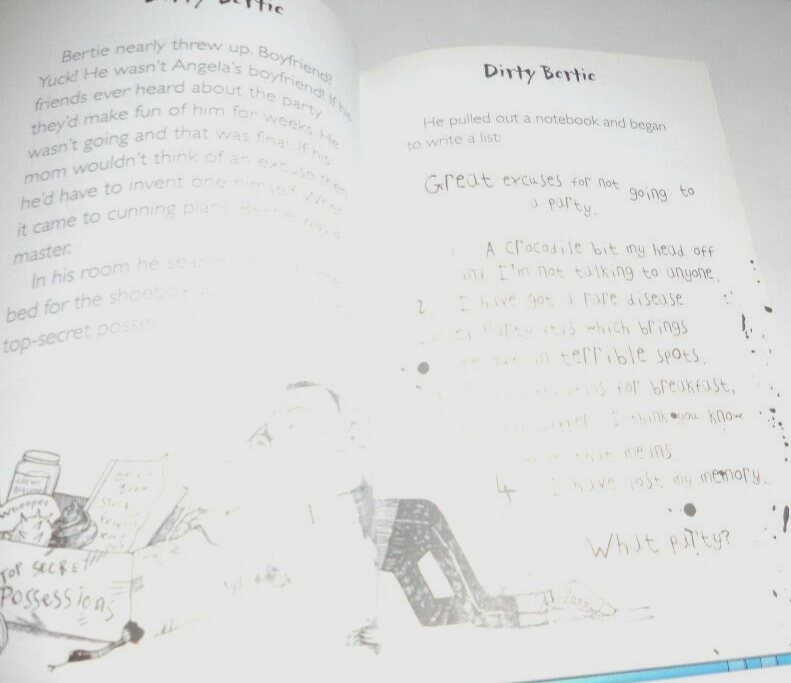 Dirty Bertie
Bertie nearly threw up. Boyfriend?
Yuck! He wasn't Angela's boyfriend! If his
friends ever heard about the party
they'd make fun of him for weeks. He
wasn't going and that was final. If his
mom wouldn't think of an excuse then
he'd have to invent one himself. When
it came to cunning plans Bertie was a
master.
In his room he
bed for the
top-secret
Whoopee
TOP SECRET
Possessions
Dirty Bertie
He pulled out a notebook and began
to write a list:
Great excuses for not going to
a party.
A crocodile bit my head off
and I'm not talking to anyone.
2 I have got a rare disease
which brings
me out in terrible spots.
for breakfast,
supper. I think you know
what that means.
4 I have lost my memory.
What party?